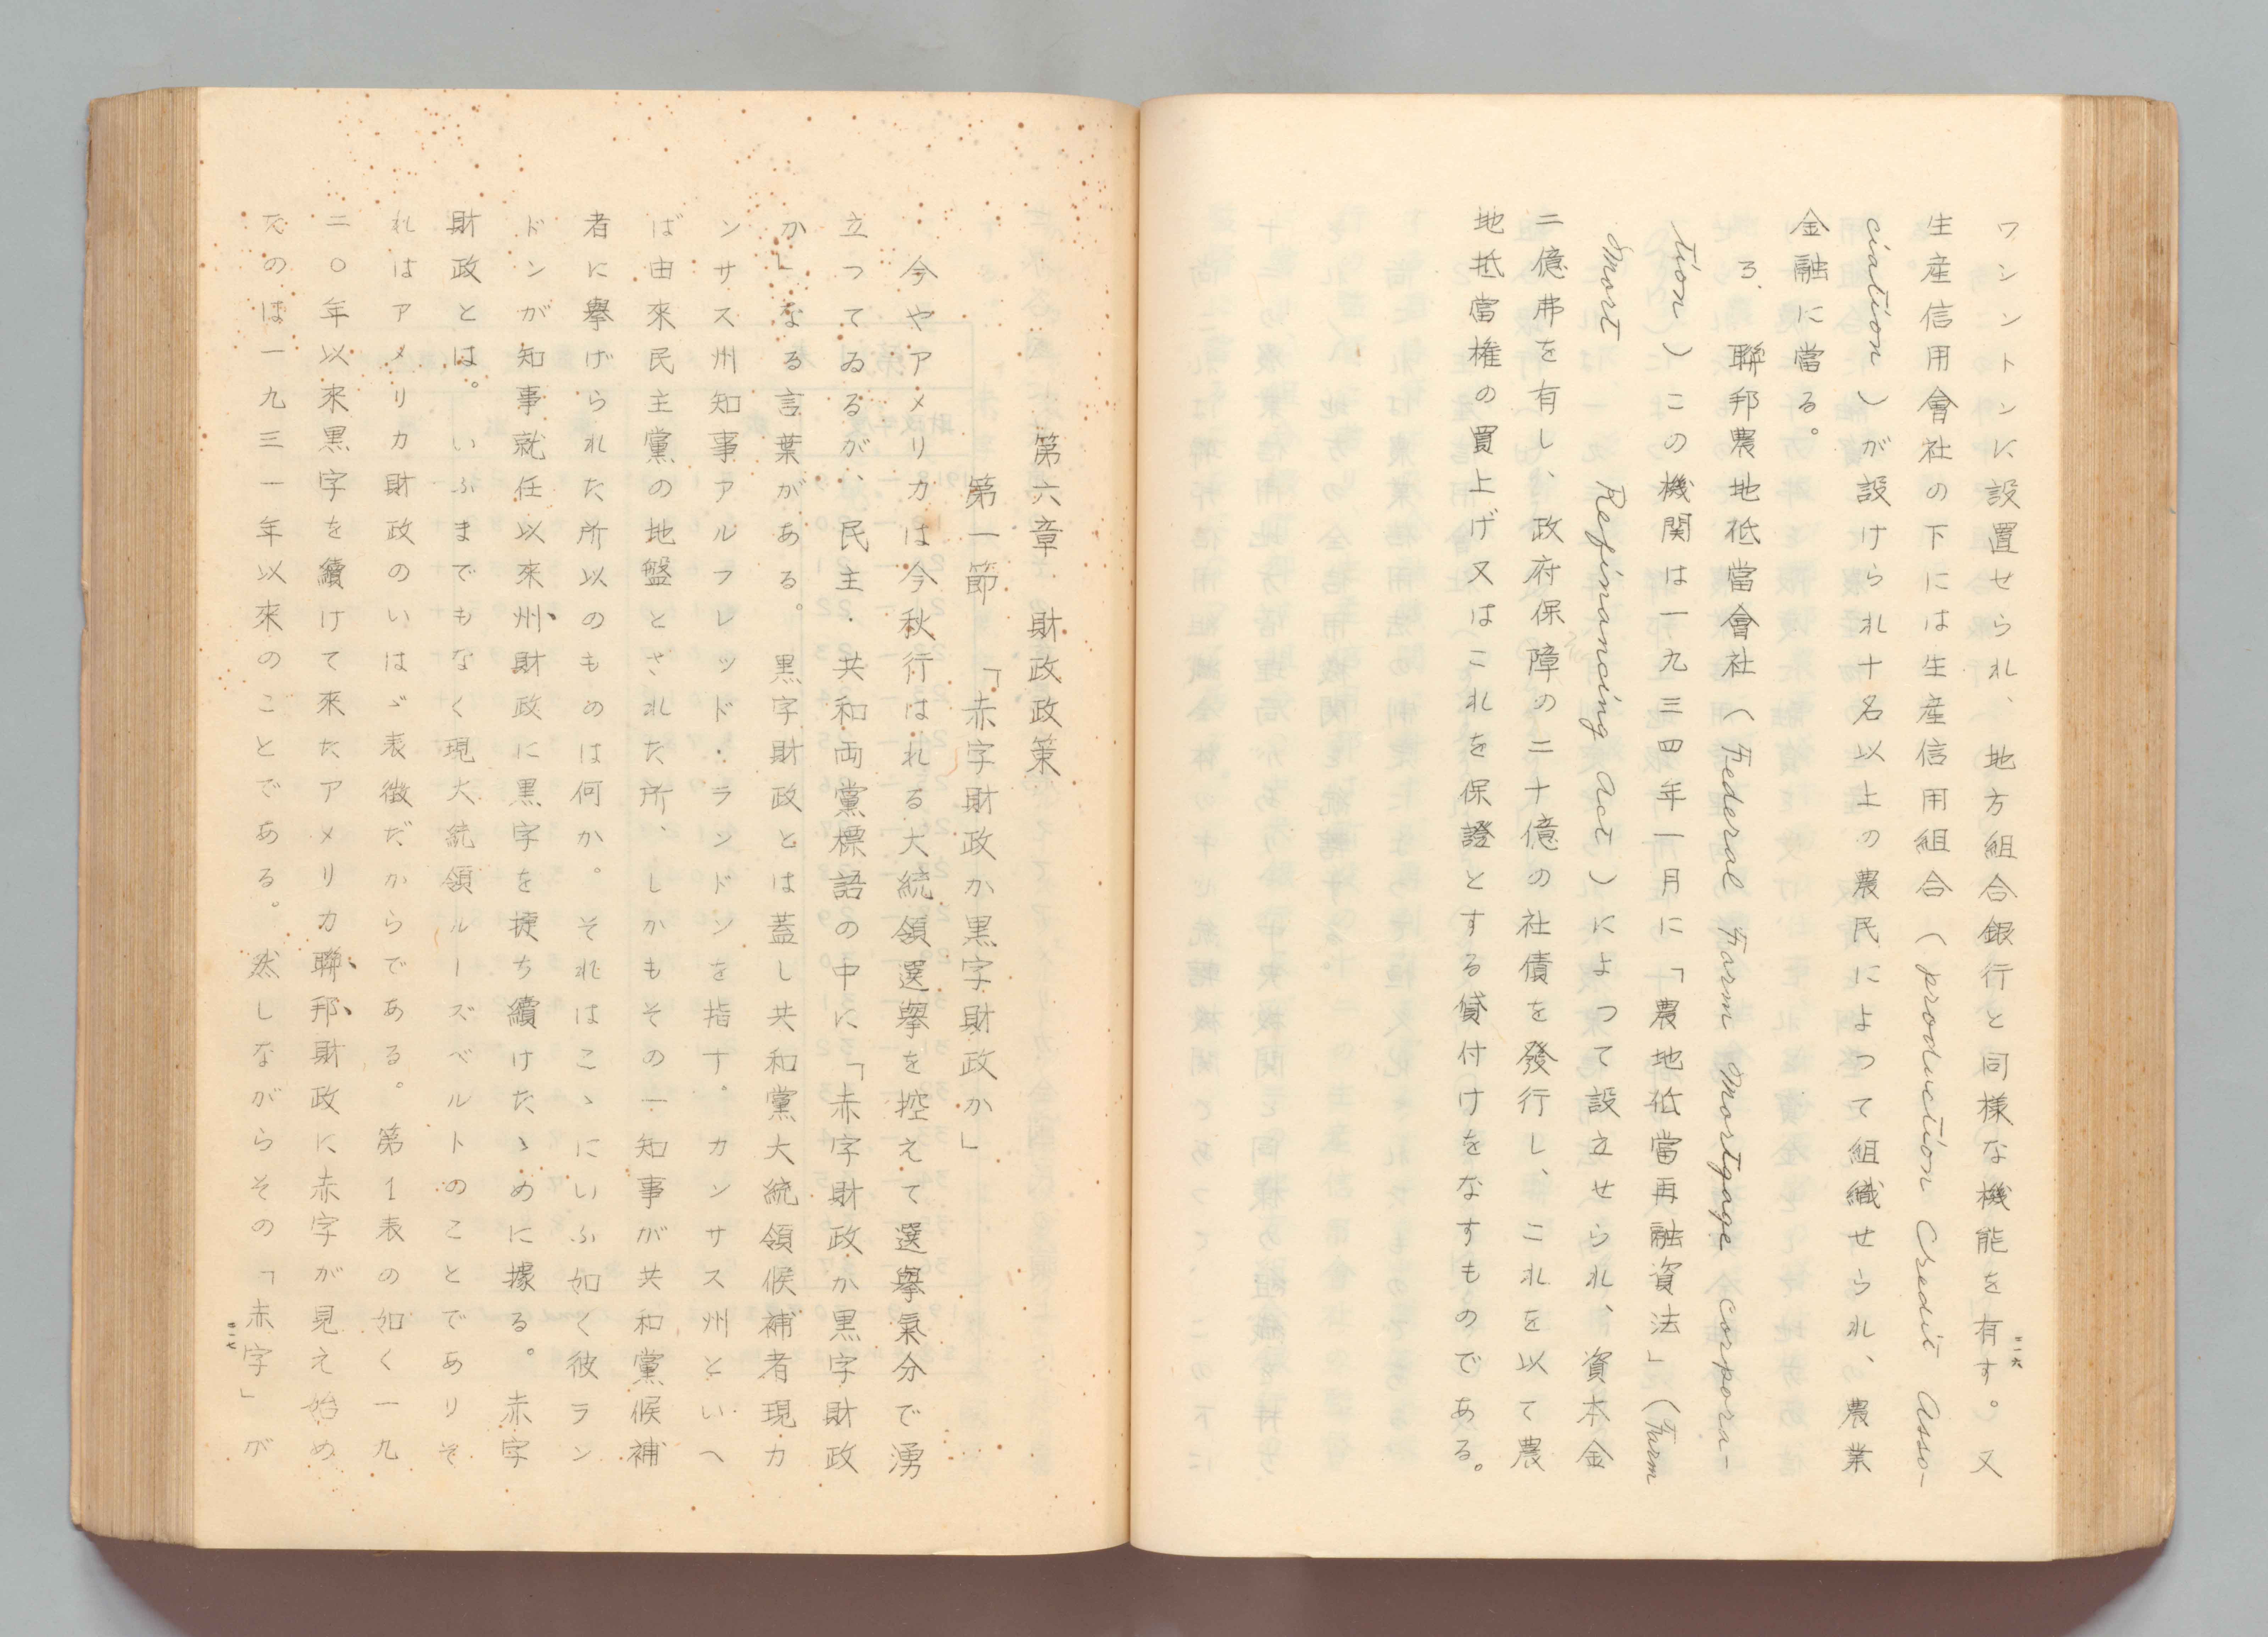 ワシントンに設置せられ、地方組合銀行と同様な機能を有す。又
生産信用會社の下には生産信用組合（production Credit Asso-
ciation）が設けられ十名以上の農民によつて組織せられ、農業
金融に當る。
3. 聯邦農地抵當會社（Federal Farm Mortgage corpora-
tion）この機関は一九三四年一月に「農地低當再融資法」（Farm
Mort Refinancing Act）によつて設立せられ、資本金
二億弗を有し、政府保障の二十億の社債を發行し、これを以て農
地抵當権の買上げ又はこれを保證とする貸付けをなすものである。
二一六
第六章 財政政策
第一節 「赤字財政か黒字財政か」
今やアメリカは今秋行はれる大統領選擧を控えて選擧氣分で湧
立つてゐるが、民主・共和両黨標語の中に「赤字財政か黒字財政
か」なる言葉がある。黒字財政とは蓋し共和黨大統領候補者現カ
ンサス州知事アルフレッド・ランドンを指す。カンサス州といへ
ば由來民主黨の地盤とされた所、しかもその一知事が共和黨候補
者に擧げられた所以のものは何か。それはこゝにいふ如く彼ラン
ドンが知事就任以來州財政に黒字を捷ち續けたゝめに據る。赤字
財政とは。いふまでもなく現大統領ルーズベルトのことでありそ
れはアメリカ財政のいはゞ表徴だからである。第1表の如く一九
二〇年以來黒字を續けて來たアメリカ聯邦財政に赤字が見え始め
たのは一九三一年以來のことである。然しながらその「赤字」が
二一七